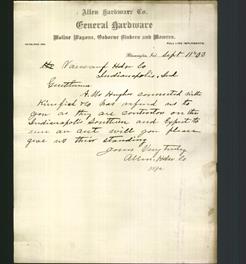 Allen Hardware Co.
General Hardware
Moline Wagons, Osborne Binders and Mowers.
Full Line Implements.
Bloomington, Ind. Sept. 11" 03
Vansant Hdw Co
Indianapolis, Ind
Gentlemen
A. M. Hughes connected with
& Co has refered us to
you as they are contractor on the
Indianapolis Southern and expect to
run an acct will you please
give us their standing
Yours Very truly
Allen Hdw Co